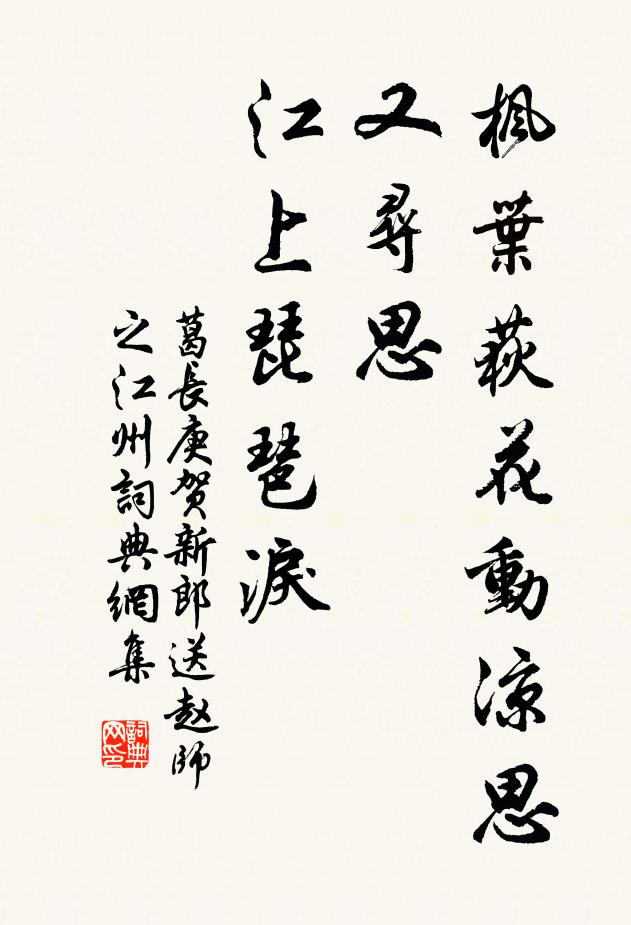 枫葉荻花動涼思
又尋思
江上琵琶淚
葛長庚贺新郎送赵師
之江州詞典網集
詞典网印